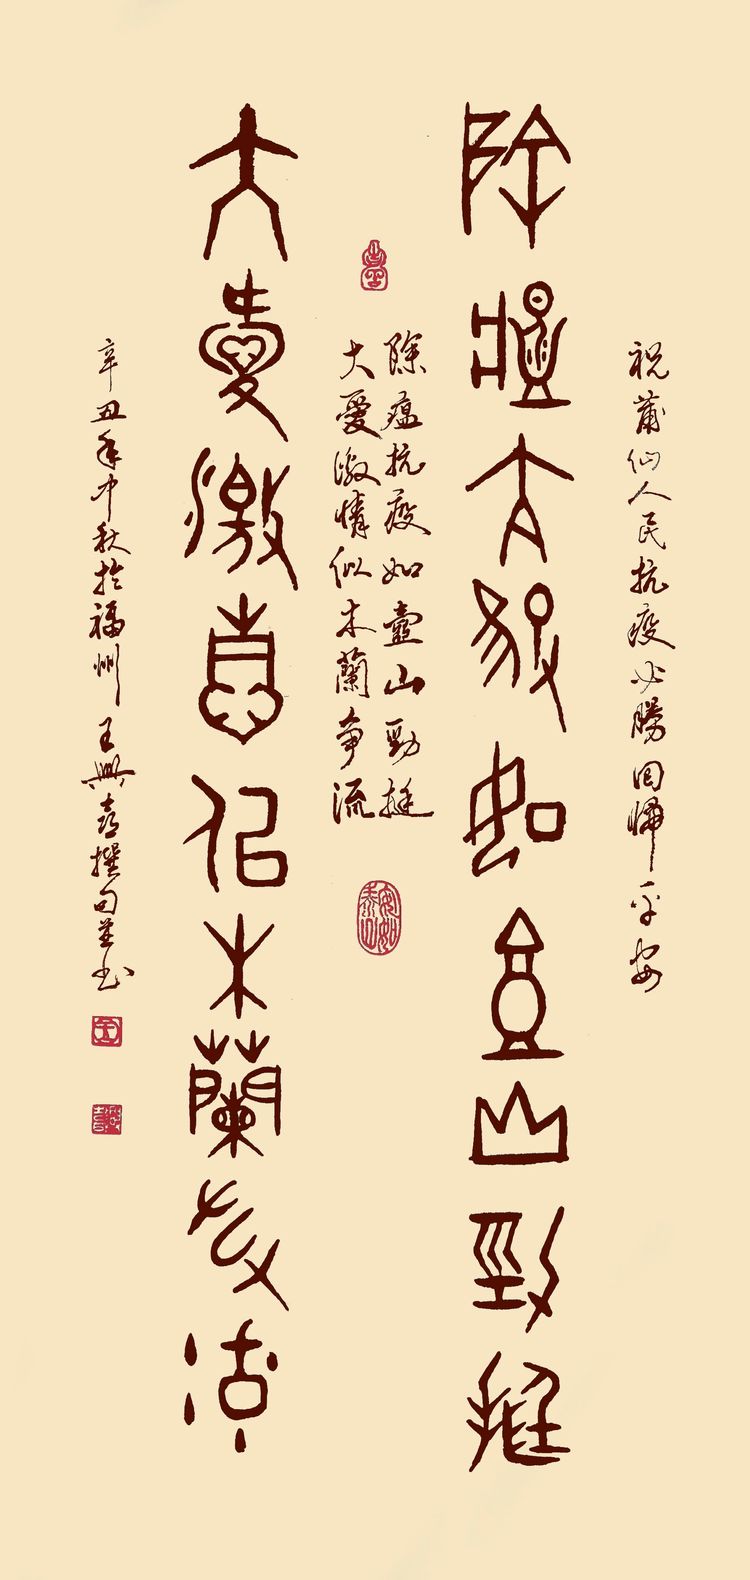 祝莆仙人民抗疫必勝回歸平安
除瘟抗疫如壺山勁挺
除瘟抗疫如壺山勁挺
大愛激情似木蘭爭流
大愛激情似木蘭爭流
辛丑年中秋於福州王興喜撰句並书